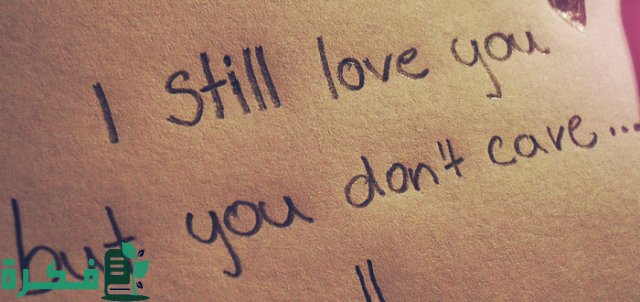 I still love you
but you don't care...
فكرة